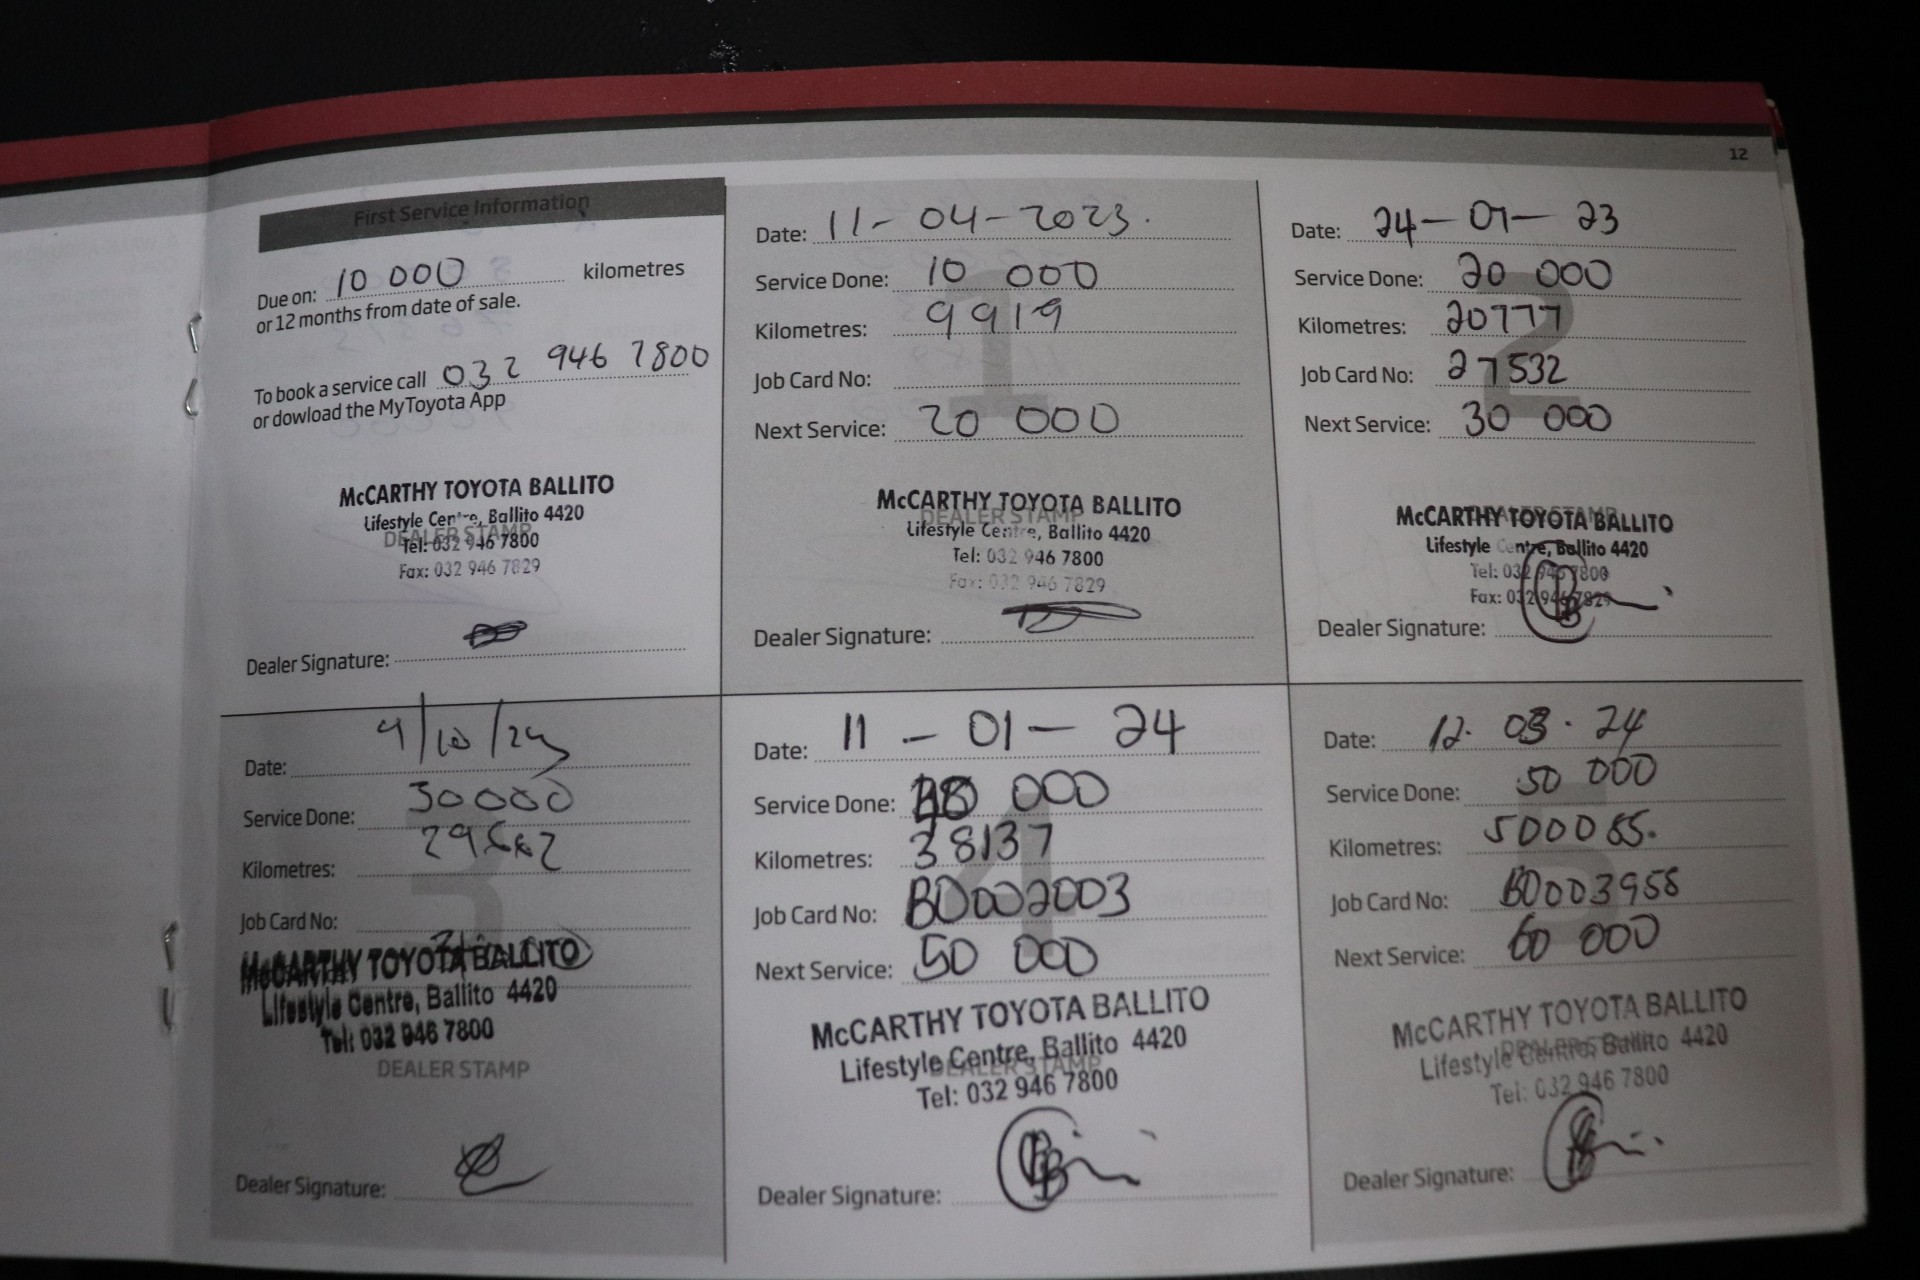 12
First Service Information
Due on: 10 000 kilometres
or 12 months from date of sale.
To book a service call 032 946 7800
or dowload the MyToyota App
McCARTHY TOYOTA BALLITO
Lifestyle Centre, Ballito 4420
DEALER STAMP
Tel: 032 946 7800
Fax: 032 946 7829
Dealer Signature:
Date: 11-04-2023.
Service Done: 10 000
Kilometres: 9919
Job Card No:
Next Service: 20 000
1
McCARTHY TOYOTA BALLITO
DEALER STAMP
Lifestyle Centre, Ballito 4420
Tel: 032 946 7800
Fax: 032 946 7829
Dealer Signature:
Date: 24-07-23
Service Done: 20 000
Kilometres: 20777
Job Card No: 27532
Next Service: 30 000
2
McCARTHY TOYOTA BALLITO
DEALER STAMP
Lifestyle Centre, Ballito 4420
Tel: 032 946 7800
Fax: 032 946 7829
Dealer Signature:
Date:
Service Done: 30000
Kilometres:
Job Card No:
3
McCARTHY TOYOTA BALLITO
Lifestyle Centre, Ballito 4420
Tel: 032 946 7800
DEALER STAMP
Dealer Signature:
Date: 11-01-24
Service Done: 000
Kilometres: 38137
Job Card No: BD002003
Next Service: 50 000
4
McCARTHY TOYOTA BALLITO
Lifestyle Centre, Ballito 4420
DEALER STAMP
Tel: 032 946 7800
Dealer Signature:
Date: 12.03.24
Service Done: 50 000
Kilometres:
Job Card No: BD003958
Next Service: 60 000
5
McCARTHY TOYOTA BALLITO
DEALER STAMP
Lifestyle Centre, Ballito 4420
Tel: 032 946 7800
Dealer Signature: